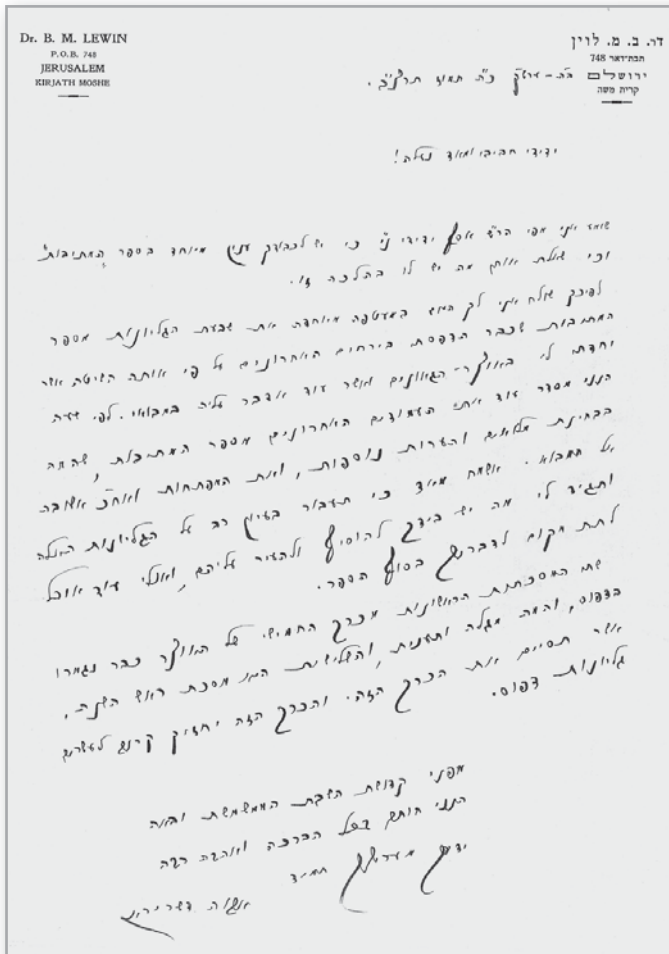 Dr. B. M. LEWIN
P.O.B. 748
JERUSALEM
KIRJATH MOSHE
דר. ב. מ. לוין
תבת־דאר 748
ירושלים
קרית משה
כ"ח תמוז תרצ"ב.
ידידי חביבי ומאד נעלה!
שומע אני מפי הר"ש אסף ידידי נ"י כי יש לכבודך ענין מיוחד בספר "המתיבות"
וכי שאלת אותו מה יש לו בהלכה זו.
לפיכך שולח אני לך במעטפה מיוחדת את שבעת הגליונות מספר
המתיבות שכבר נדפסו בירחים האחרונים על פי אותה השיטה אשר
יחדתי לי באוצר־הגאונים ואשר עוד אדבר עליה במבואי. לפי שעה
הנני מסדר עוד את העמודים האחרונים מספר המתיבות, שהמה
בבחינת מלואים והערות נוספות, ואת המפתחות ואח"כ אשובה
אל המבוא. אשמח מאד כי תעבור בעיון רב על הגליונות האלה
ותגיד לי מה יש בידך להוסיף ולהעיר עליהם, ואולי עוד אוכל
לתת מקום לדבריך בסוף הספר.
שתי המסכתות הראשונות מכרך החמישי של האוצר כבר נגמרו
בדפוס, והמה מגלה ותענית, והשלישית היא מסכת ראש השנה,
אשר תסיים את הכרך הזה. והכרך הזה יחזיק קרוב לעשרים
גליונות דפוס.
מפני קדושת השבת הממשמשת ובאה
הנני חותם בכל הברכה ואהבה רבה
ידידך מעריצך תמיד